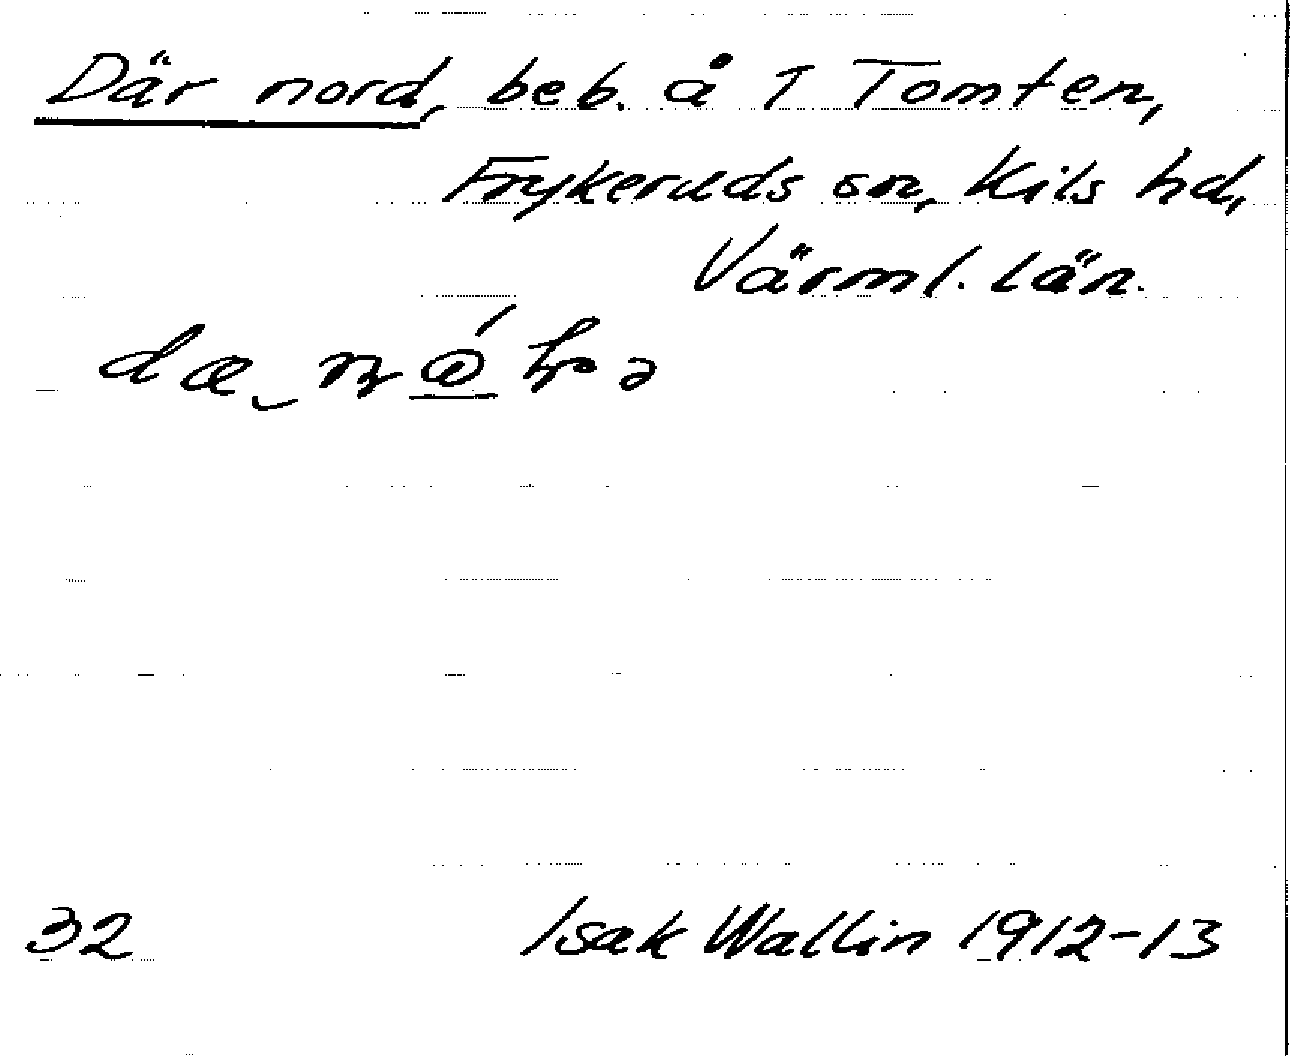 Där nord, beb. å 1 Tomten,
Frykeruds sn, Kils hd,
Värml. län.
32 Isak Wallin 1912-13